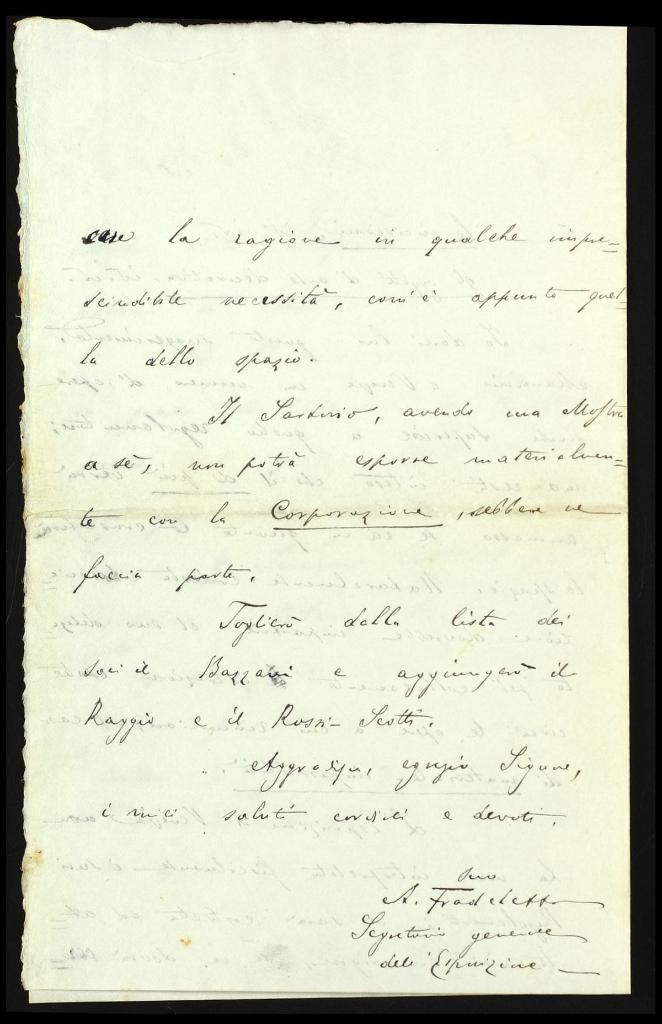 care la ragione in qualche impre=
scindibile necessità, com'è appunto quel=
la dello spazio.
Il Sartorio, avendo una Mostra
a sè, non potrà esporre materialmen=
te con la Corporazione, sebbene ne
faccia parte.
Toglierò dalla lista dei
soci il Bazzani e aggiungerò il
Raggio e il Rossi-Scotti.
Aggradisca, egregio Signore,
i miei saluti cordiali e devoti.
suo
A. Fradeletto
Segretario generale
dell'Esposizione